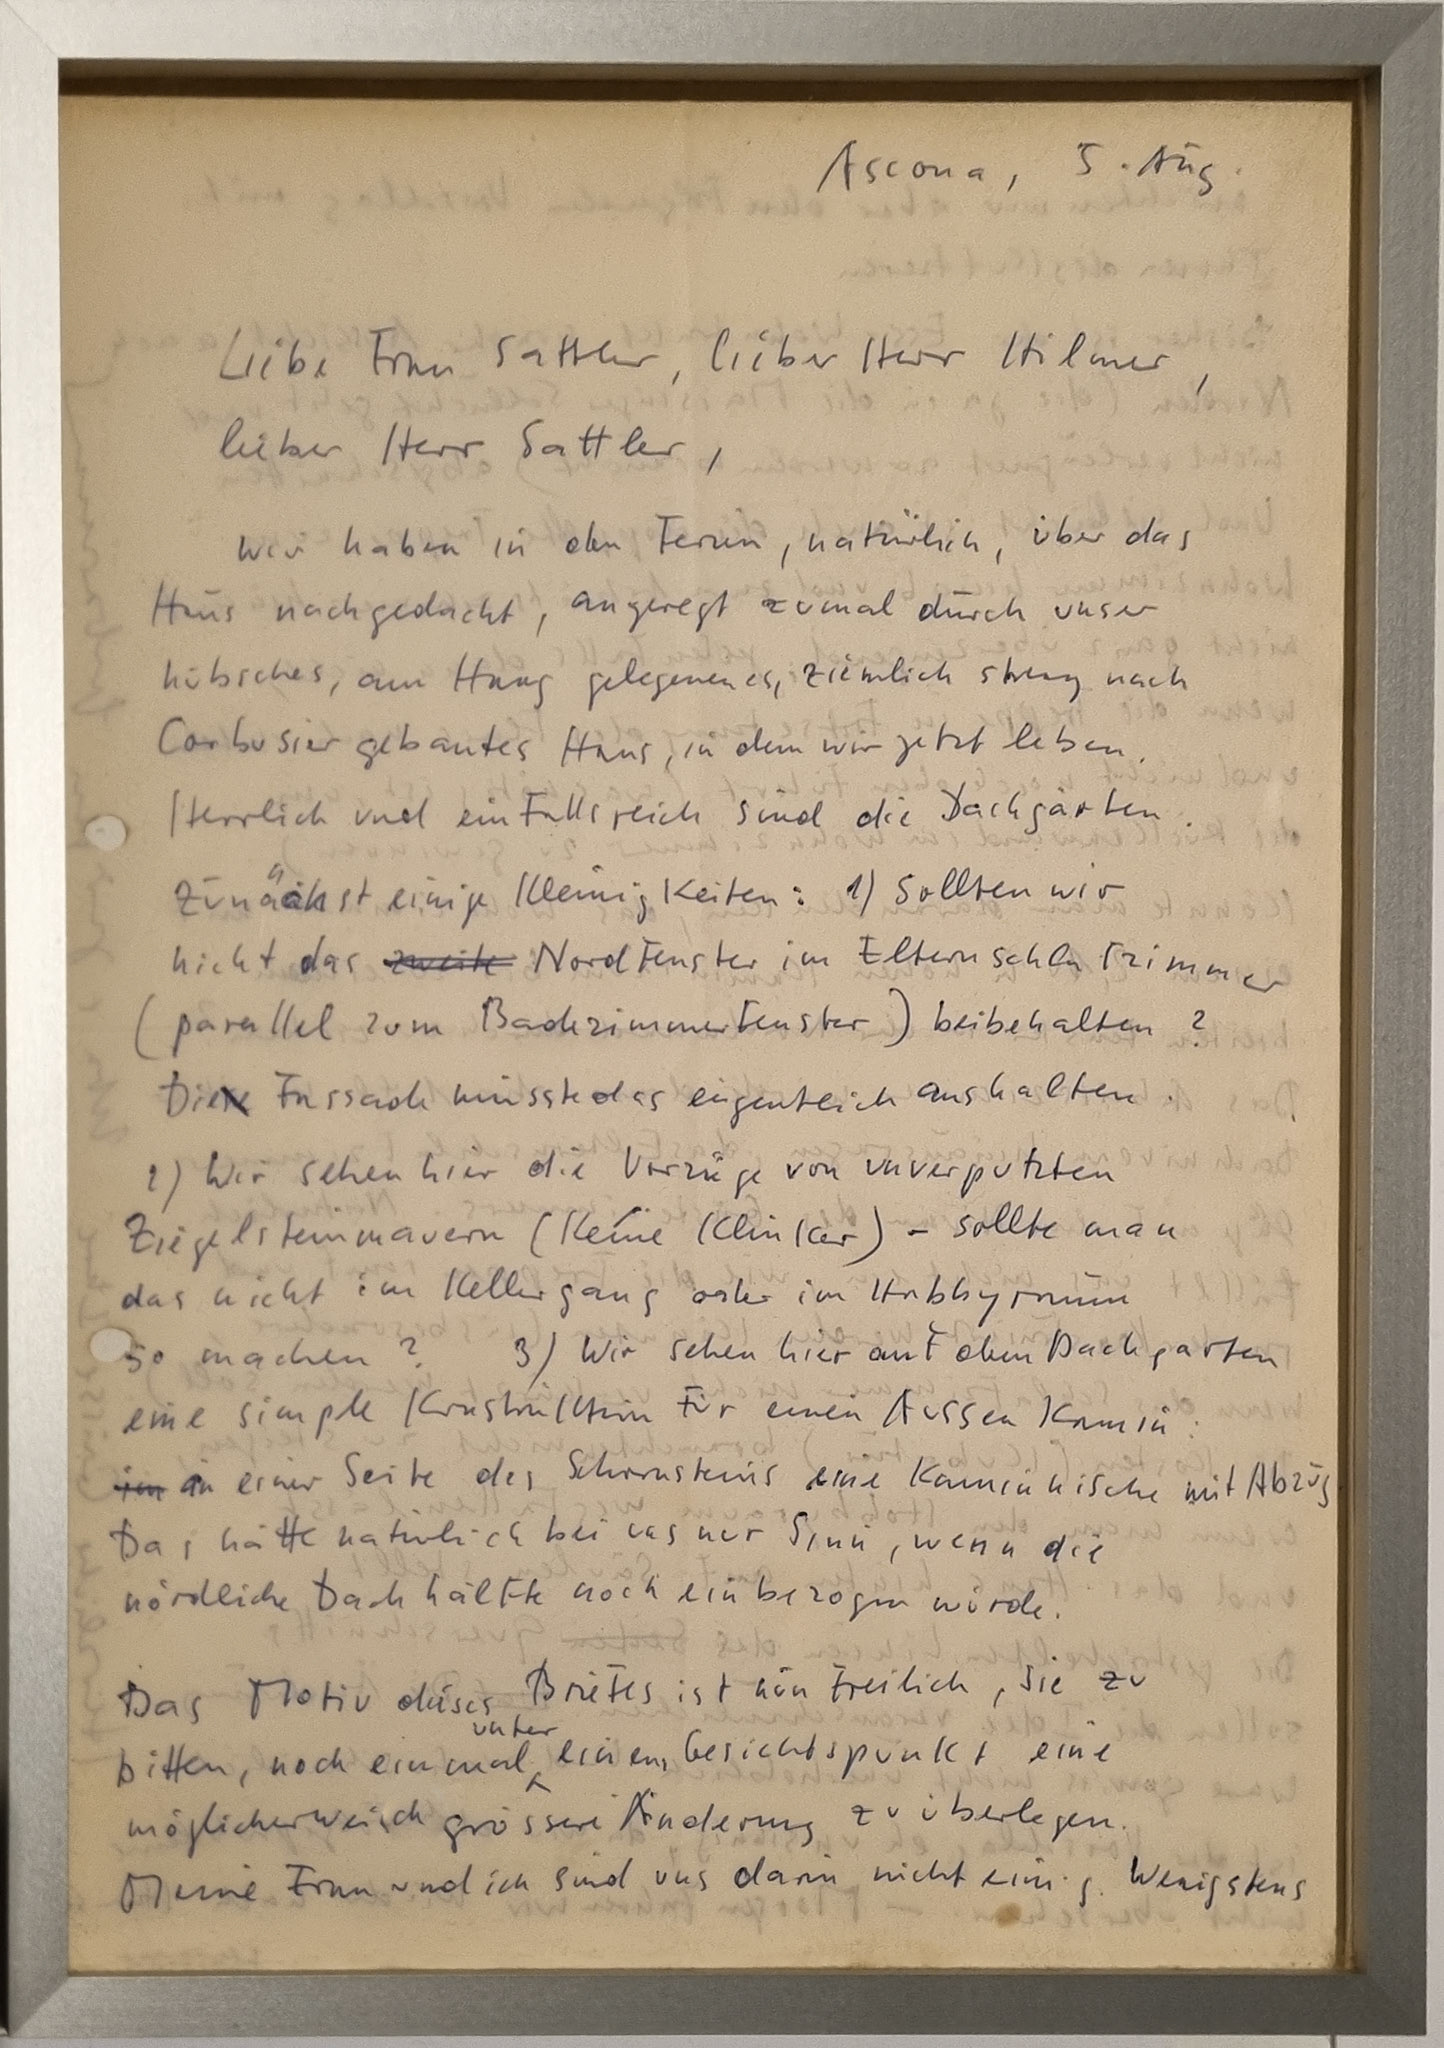 Ascona, 5. Aug.
Liebe Frau Sattler, lieber Herr Hilmer,
lieber Herr Sattler,
wir haben in den Ferien, natürlich, über das
Haus nachgedacht, angeregt zumal durch unser
hübsches, am Hang gelegenenes, ziemlich streng nach
Corbusier gebautes Haus, in dem wir jetzt leben.
Herrlich und einfallsreich sind die Dachgärten.
Zunächst einige Kleinigkeiten: 1) Sollten wir
nicht das zweite Nordfenster im Elternschlafzimmer
(parallel zum Badezimmerfenster) beibehalten?
Die Fassade müsste das eigentlich aushalten.
2) Wir sehen hier die Vorzüge von unverputzten
Ziegelsteinmauern (Keine Klinker) – sollte man
das nicht im Kellergang oder im Hobbyraum
so machen? 3) Wir sehen hier auf dem Dachgarten
eine simple Konstruktion für einen Aussenkamin:
im in einer Seite des Schornsteins eine Kaminnische mit Abzug
Das hätte natürlich bei uns nur Sinn, wenn die
nördliche Dachhälfte noch einbezogen würde.
Das Motiv dieses Briefes ist nun freilich, Sie zu
bitten, noch einmal unter einem Gesichtspunkt eine
möglicherweise grössere Änderung zu überlegen.
Meine Frau und ich sind uns darin nicht einig. Wenigstens